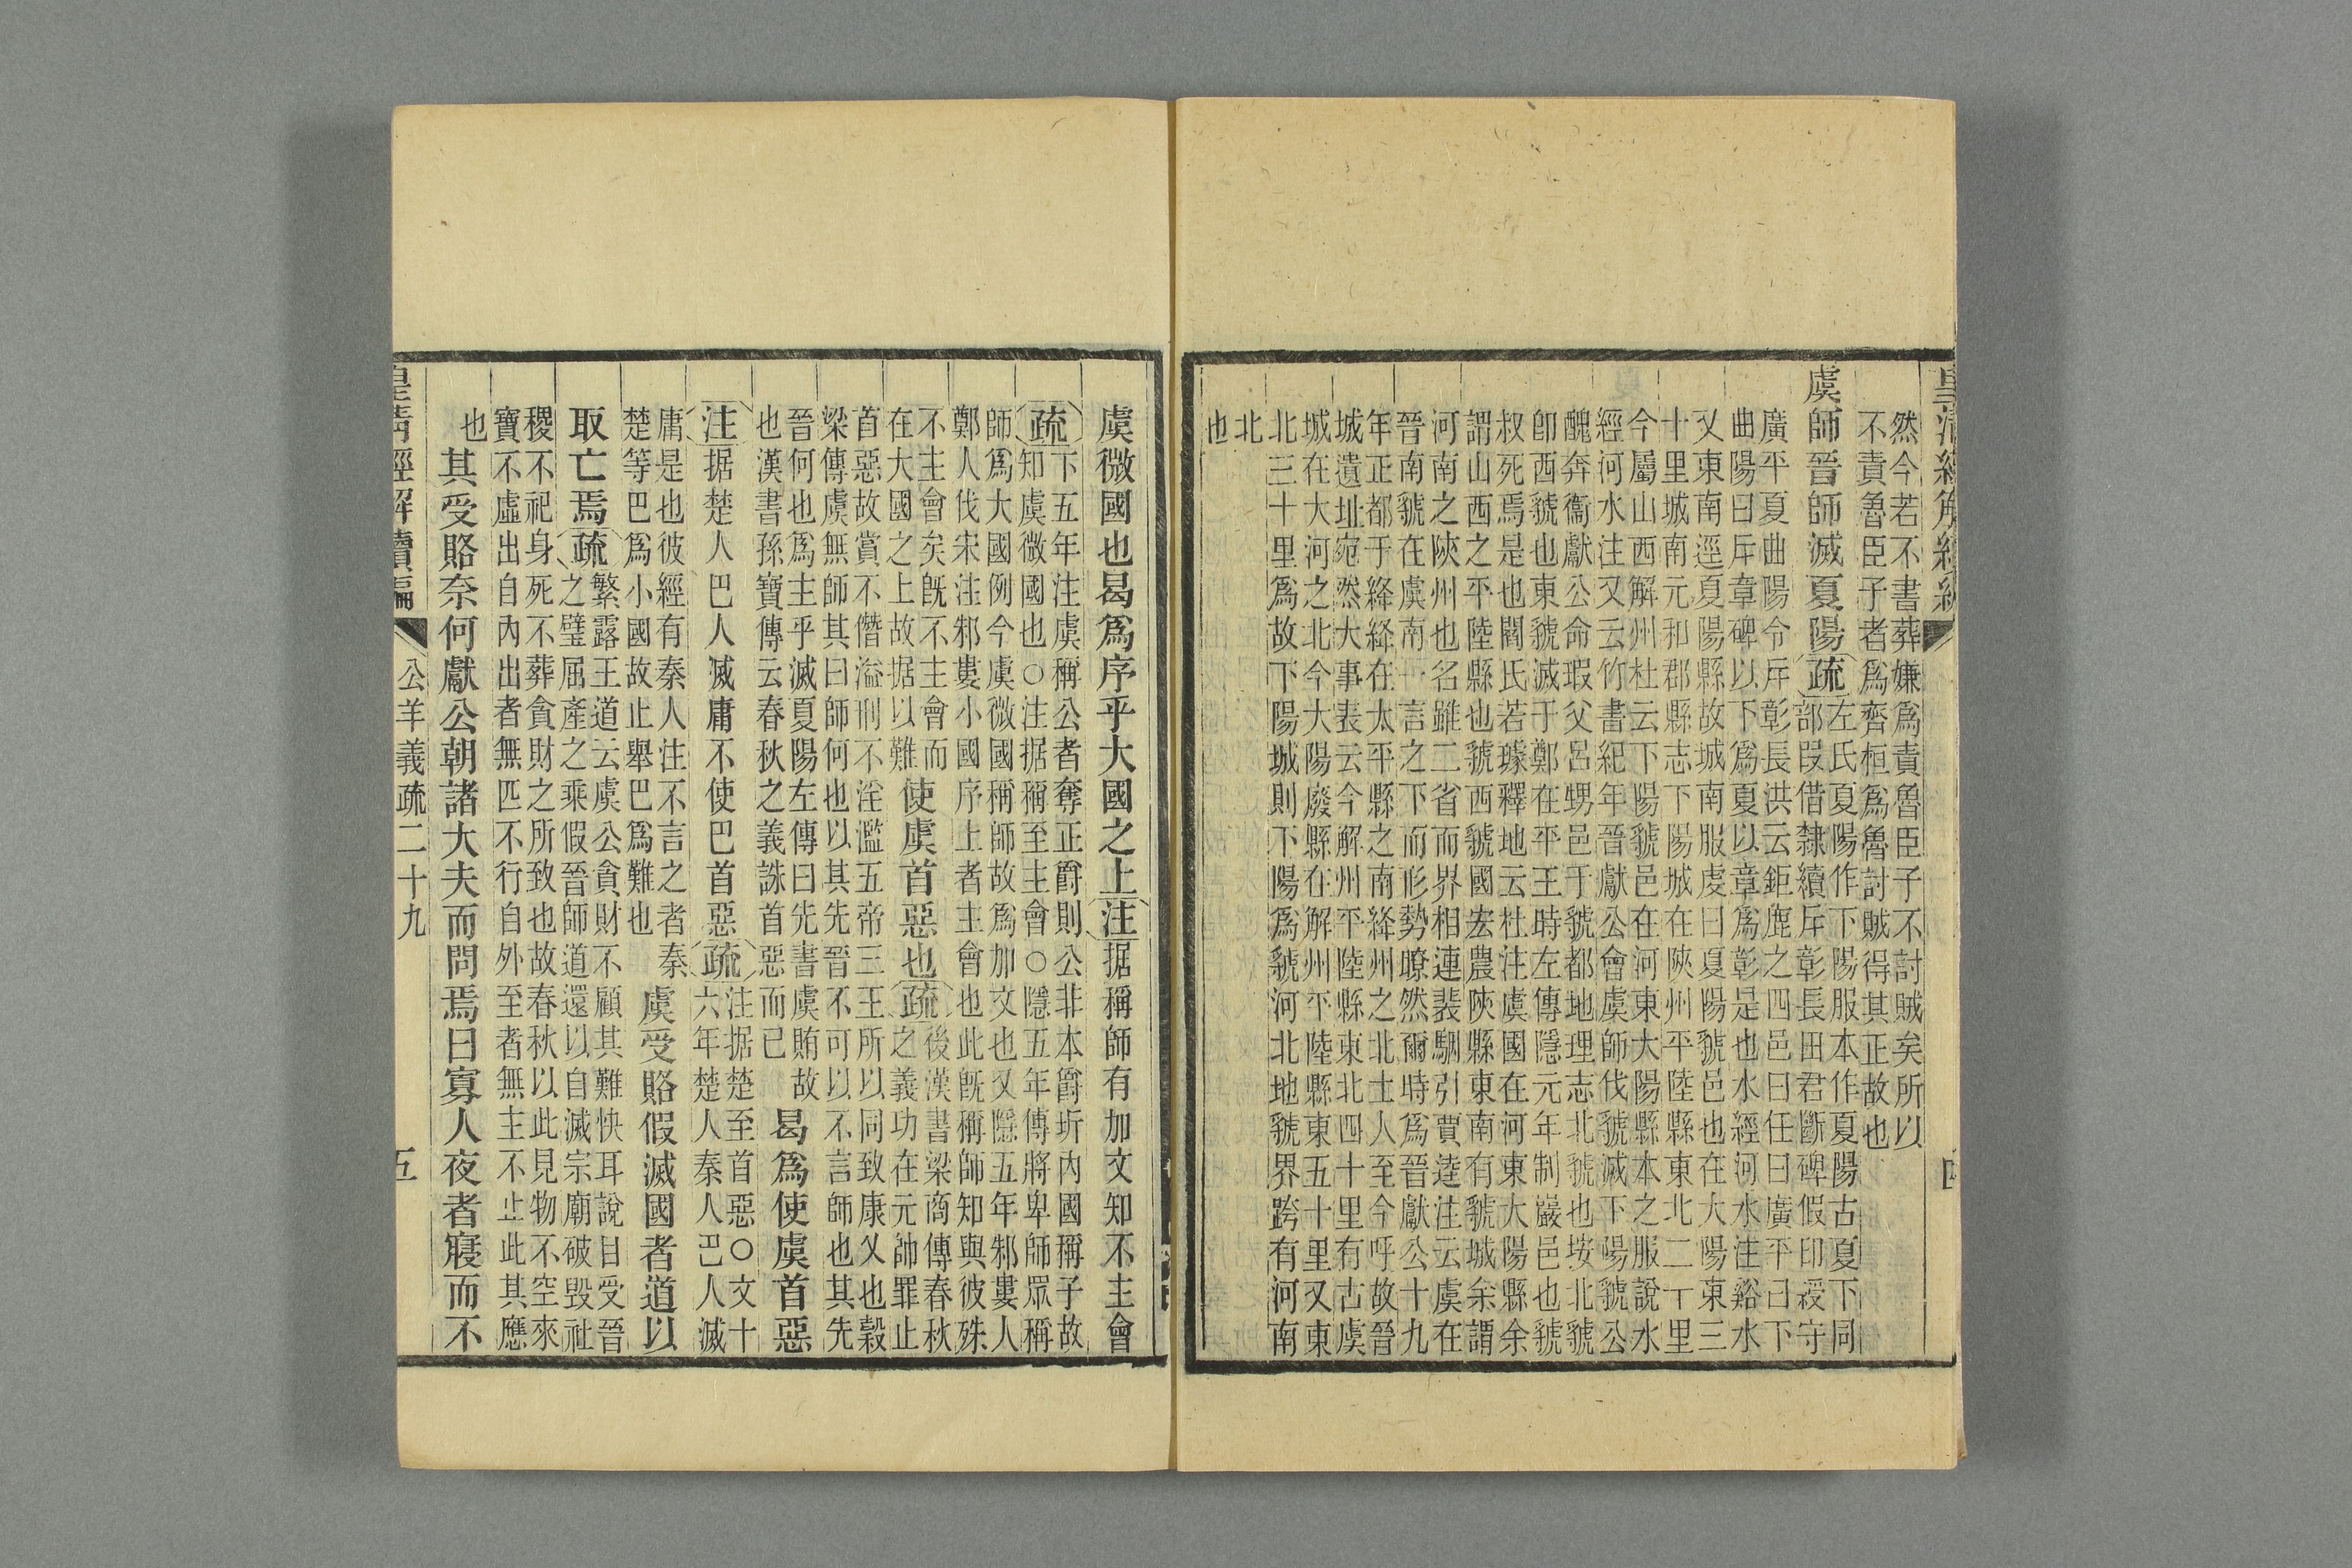 然今若不書葬嫌爲責魯臣子不討賊矣所以
不責魯臣子者爲齊桓爲魯討賊得其正故也
虞師晉師滅夏陽疏
左氏夏陽作下陽服本作夏陽古夏下同
部叚借隸續斥彰長田君斷碑假印綬守
廣平夏曲陽令斥彰長洪云鉅鹿之四邑曰任曰廣平曰下
曲陽曰斥章碑以下爲夏以章爲彰是也水經河水注谿水
又東南逕夏陽縣故城南服虔曰夏陽虢邑也在大陽東三
十里城南元和郡縣志下陽城在陝州平陸縣東北二十里
今屬山西解州杜云下陽虢邑在河東大陽縣本之服說水
經河水注又云竹書紀年晉獻公會虞師伐虢滅下陽虢公
醜奔衞獻公命瑕父呂甥邑于虢都地理志北虢也垵北虢
卽西虢也東虢滅于鄭在平王時左傳隱元年制巖邑也虢
叔死焉是也閻氏若璩釋地云杜注虞國在河東大陽縣余
謂山西之平陸縣也虢西虢國宏農陝縣東南有虢城余謂
河南之陝州也名雖二省而界相連裴駰引賈逵注云虞在
晉南虢在虞南一言之下而形勢瞭然爾時爲晉獻公十九
年正都于絳絳在太平縣之南絳州之北土人至今呼故晉
城遺址宛然大事表云今解州平陸縣東北四十里有古虞
城在大河之北今大陽廢縣在解州平陸縣東五十里又東
北三十里爲故下陽城則下陽爲虢河北地虢界跨有河南
北
也
虞微國也曷爲序乎大國之上注据稱師有加文知不主會
疏
下五年注虞稱公者奪正爵則公非本爵圻内國稱子故
知虞微國也○注据稱至主會○隱五年傳將卑師眾稱
師爲大國例今虞微國稱師故爲加文也又隱五年邾婁人
鄭人伐宋注邾婁小國序上者主會也此旣稱師知與彼殊
不主會矣旣不主會而
在大國之上故据以難
使虞首惡也疏
後漢書梁商傳春秋
之義功在元帥罪止
首惡故賞不僭溢刑不淫濫五帝三王所以同致康乂也穀
梁傳虞無師其曰師何也以其先晉不可以不言師也其先
晉何也爲主乎滅夏陽左傳曰先書虞賄故
也漢書孫寶傳云春秋之義誅首惡而已
曷爲使虞首惡
注据楚人巴人滅庸不使巴首惡疏
注据楚至首惡○文十
六年楚人秦人巴人滅
庸是也彼經有秦人注不言之者秦
楚等巴爲小國故止舉巴爲難也
虞受賂假滅國者道以
取亡焉疏
繁露王道云虞公貪財不顧其難快耳說目受晉
之璧屈產之乘假晉師道還以自滅宗廟破毀社
稷不祀身死不葬貪財之所致也故春秋以此見物不空來
寶不虛出自内出者無匹不行自外至者無主不止此其應
也
其受賂奈何獻公朝諸大夫而問焉曰寡人夜者寢而不
皇清經解續編 公羊義疏二十九 五